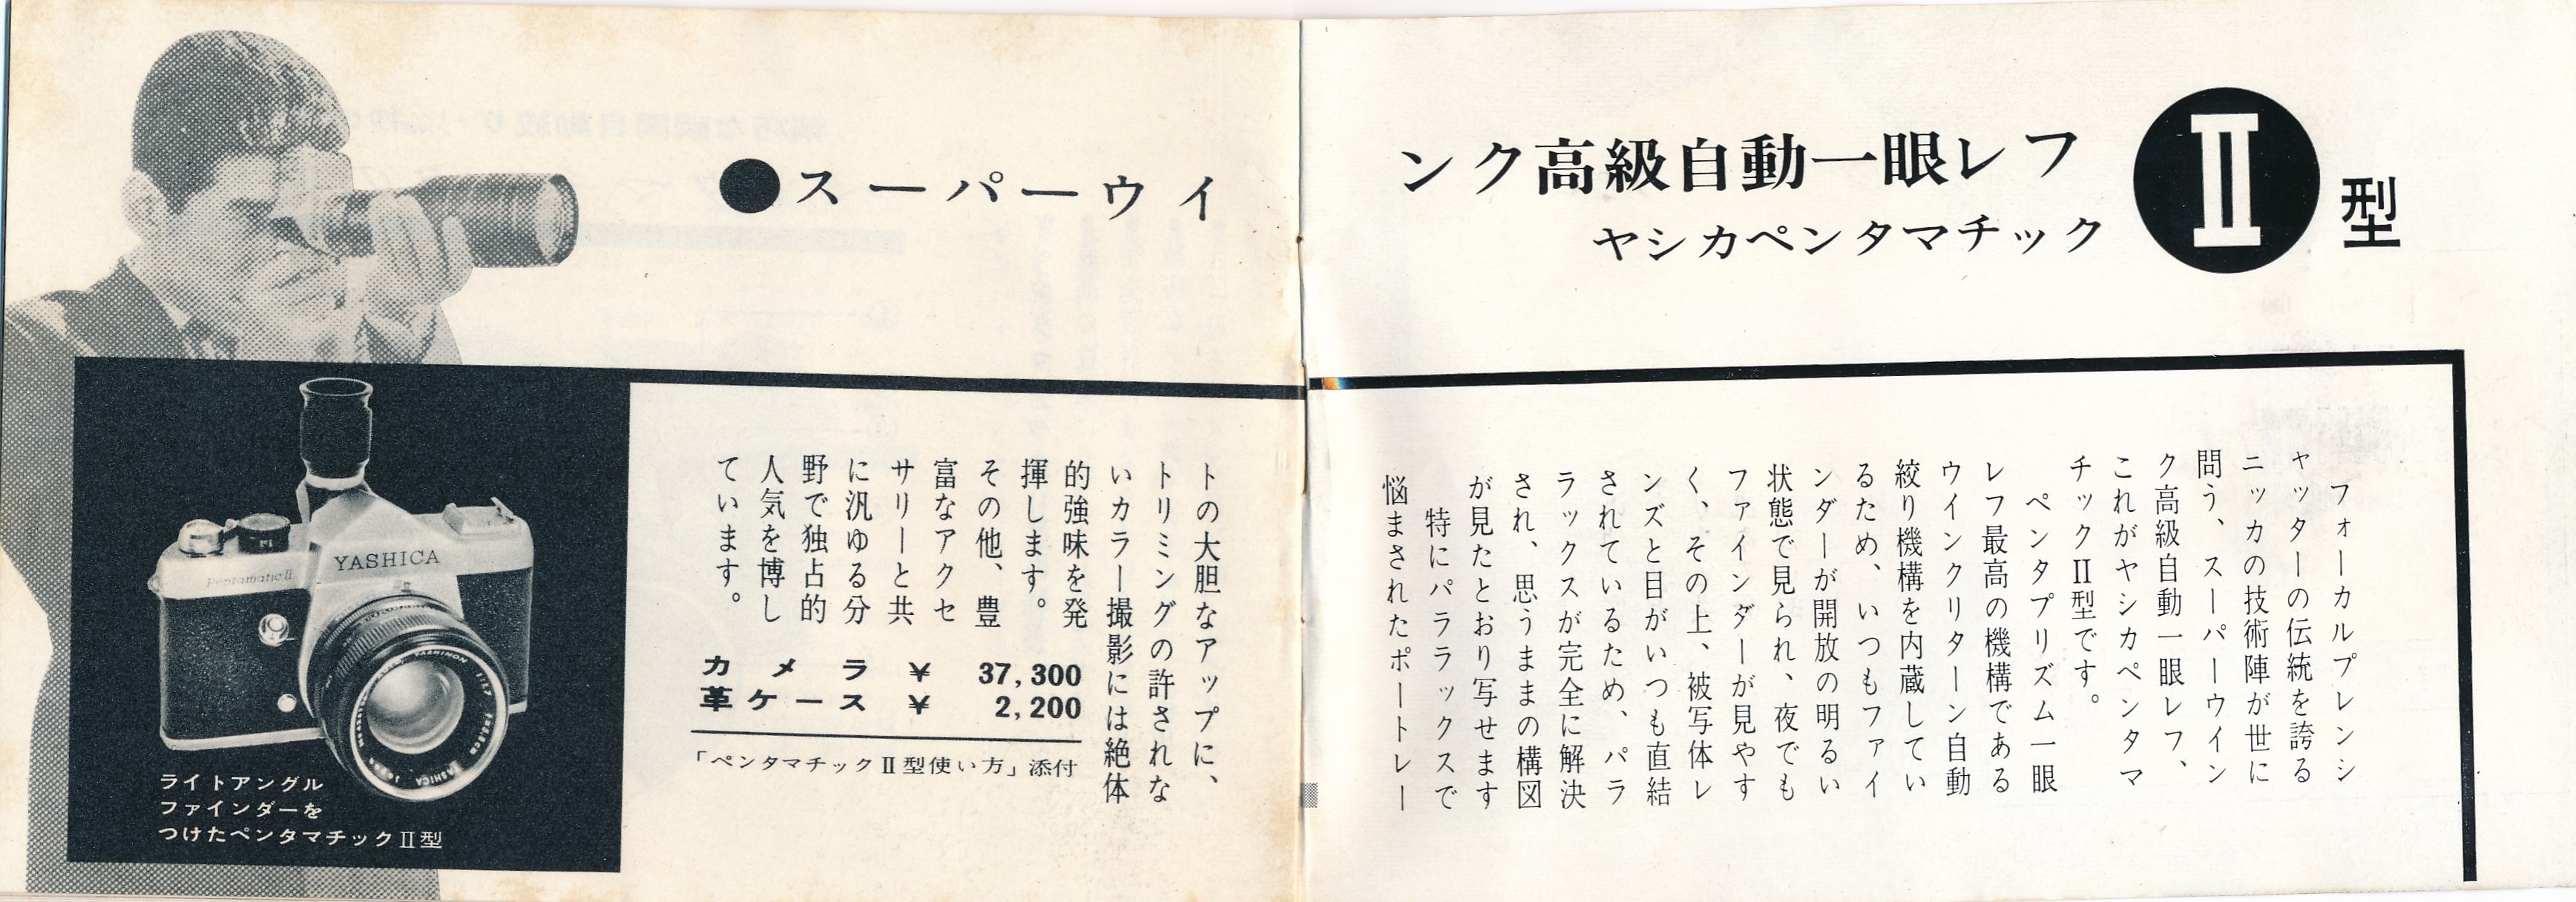 ●スーパーウインク高級自動一眼レフ
ヤシカペンタマチックⅡ型
フォーカルプレンシ
ャッターの伝統を誇る
ニッカの技術陣が世に
問う、スーパーウイン
ク高級自動一眼レフ、
これがヤシカペンタマ
チックⅡ型です。
ペンタプリズム一眼
レフ最高の機構である
ウインクリターン自動
絞り機構を内蔵してい
るため、いつもファイ
ンダーが開放の明るい
状態で見られ、夜でも
ファインダーが見やす
く、その上、被写体レ
ンズと目がいつも直結
されているため、パラ
ラックスが完全に解決
され、思うままの構図
が見たとおり写せます
特にパララックスで
悩まされたポートレー
トの大胆なアップに、
トリミングの許されな
いカラー撮影には絶体
的強味を発
揮します。
その他、豊
富なアクセ
サリーと共
に汎ゆる分
野で独占的
人気を博し
ています。
カメラ ¥ 37,300
革ケース ¥ 2,200
「ペンタマチックⅡ型使い方」添付
YASHICA
Pentamatic II
ライトアングル
ファインダーを
つけたペンタマチックⅡ型